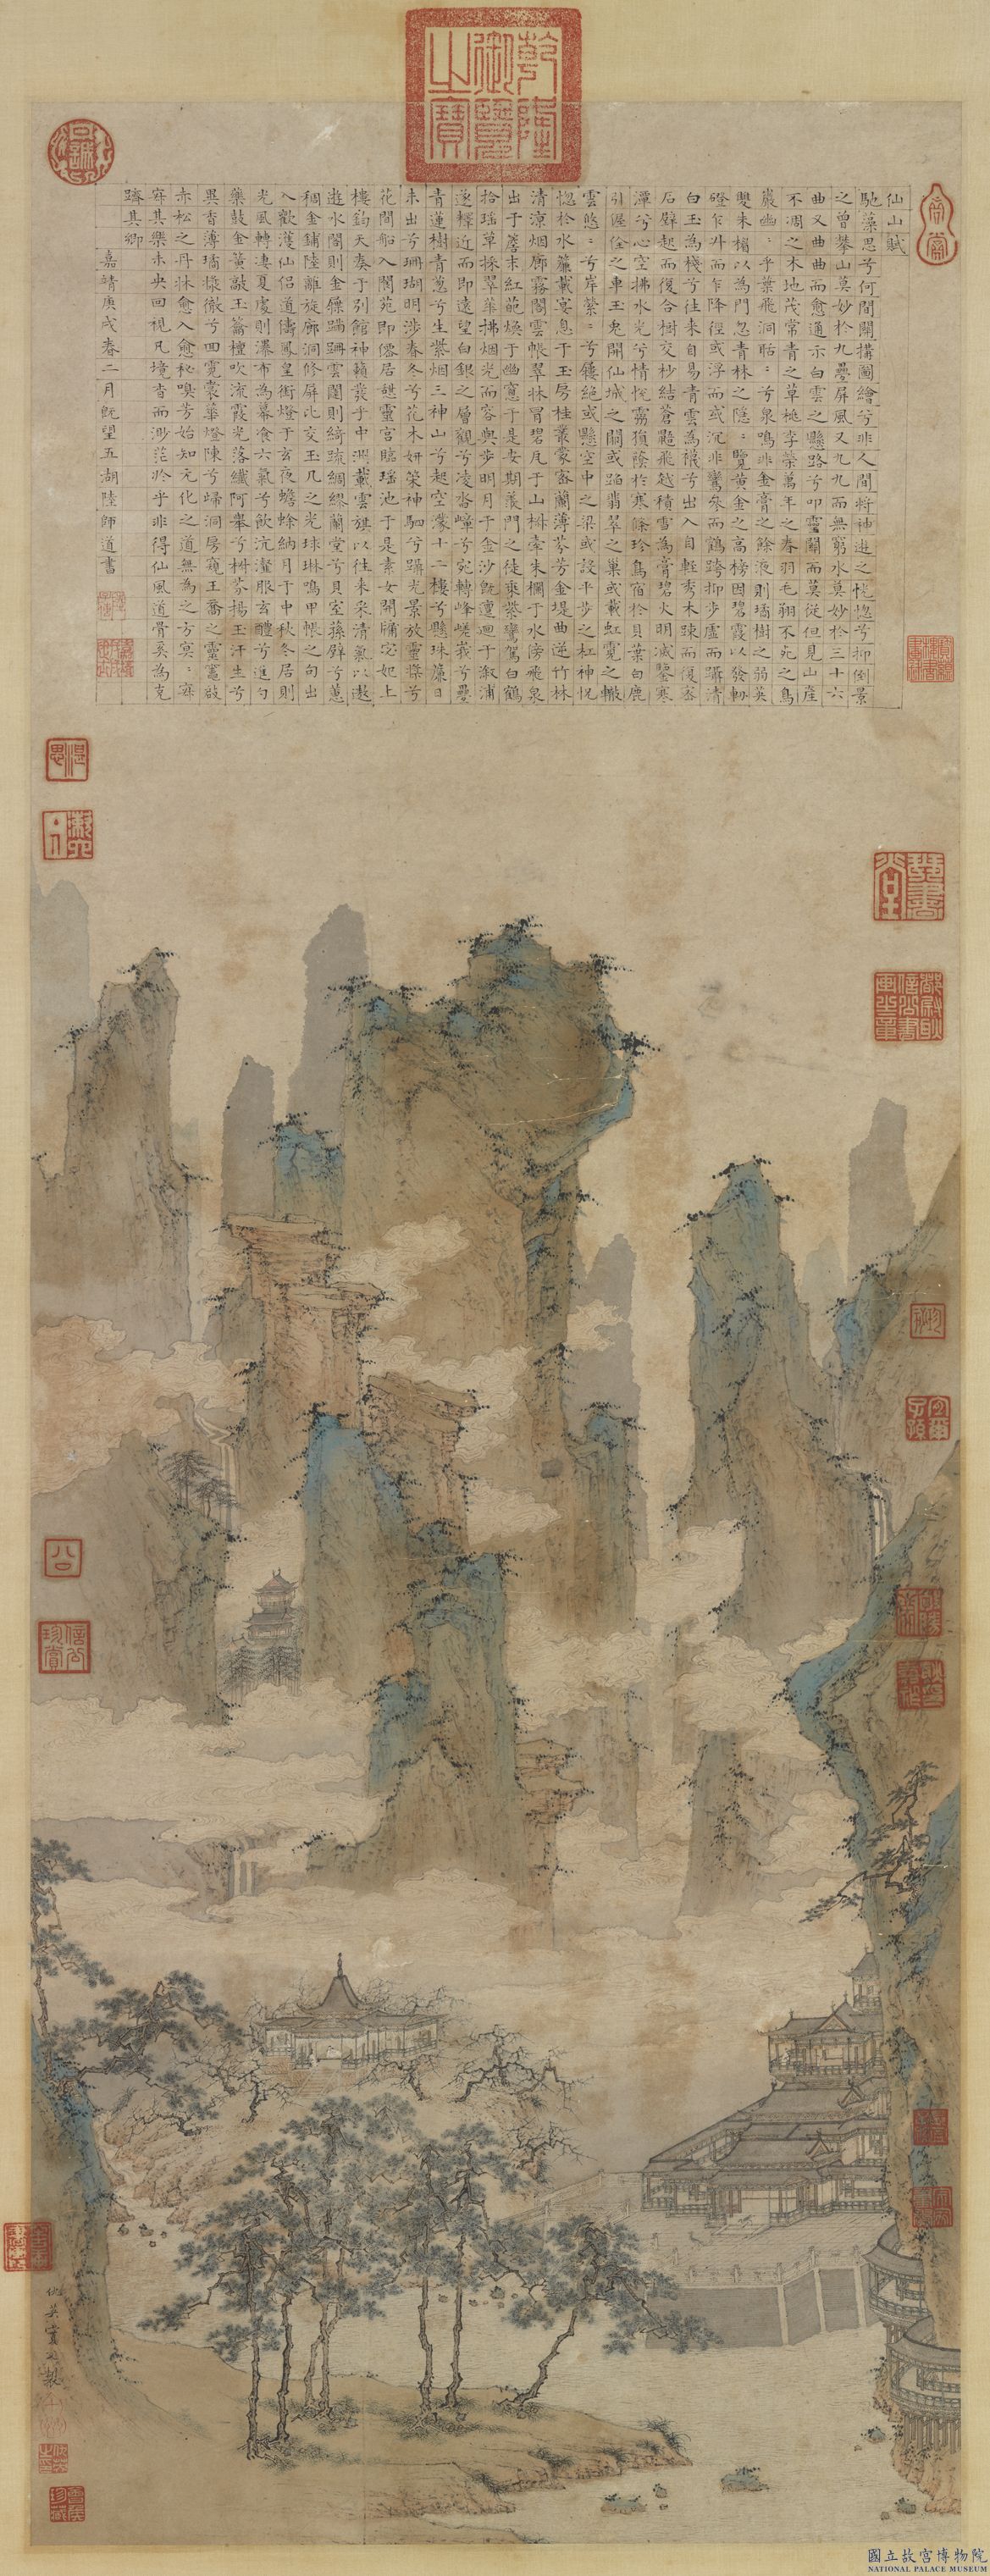 仙山賦
馳藻思兮何間闊搆圖繪兮非人間將神遊之恍惚兮抑倒景
之曾攀山莫妙於九疊屏風又九九而無窮水莫妙於三十六
曲又曲曲而愈通示白雲之懸路兮叩靈關而莫從但見山產
不凋之木地茂常青之草桃李榮萬年之春羽毛翔不死之鳥
巖幽〻乎葉飛洞聒〻兮泉鳴非金膏之餘液則璚樹之弱英
雙朱楊以為門忽青林之隱〻覽黃金之高榜因碧霞以發軔
磴乍升而乍降徑或浮而或沉非鸞驂而鶴跨抑步虛而躡清
白玉為棧兮往來自易青雲為襪兮出入自輕秀木踈而復密
石壁起而復合樹交杪結蒼飛越積雪為膏碧火明滅鑒寒
潭兮心空拂水光兮情悅霧猿蔭於寒條珍鳥宿於貝葉白鹿
引偓佺之車玉兎開仙城之闕或踊翡翠之巢或載虹霓之轍
雲悠〻兮岸縈〻兮鏤絕或懸空中之梁或設平步之杠神恍
惚於水簾載宴息于玉房桂叢蒙密蘭薄芬芳金堤曲逆竹林
清涼烟廊霧閣雲帳翠牀冒碧瓦于山椒牽朱欄于水傍飛泉
出于簷末紅葩煥于幽窻于是安期羨門之徒乘紫鸞駕白鶴
拾瑤草採翠華拂烟光而容與步明月于金沙旣邅迴于溆浦
遂釋近而即遠望白銀之層觀兮凌沓嶂兮宛轉峰嵯峩兮疊
青蓮樹青蔥兮生紫烟三神山兮起空濛十二樓兮懸珠簾日
未出兮珊瑚明涉春冬兮花木妍榮神駟兮躡光景放靈㯋兮
花間船入閬苑即僊居謁靈宮臨瑤池于是素女開牖宓妃上
樓鈞天奏于別館神籟發乎中洲載雲旗以往來采清氣以遨
遊水閣則金鏁踊跚雲闥則綺疏綢繆蘭堂兮貝室蓀壁兮蕙
稠金鋪陸離旋廊洞修屏比交玉几之光球琳鳴甲帳之句出
入歡濩仙侶道儔鳳皇銜燈于玄夜蟾蜍納月于中秋冬居則
光風轉凄夏處則瀑布為幕飡六氣兮飲沆瀣服玄醴兮進勺
藥鼓金簧敲玉籥檀吹流霞光落纖阿舉兮樹芬揚玉汗生兮
異香薄璚漿徹兮回霓裳華燈陳兮歸洞房窺王喬之靈竈啟
赤松之丹牀愈入愈秘嗅芳始知元化之道無為之方冥〻寐
寐其樂未央回視凡境杳而渺茫於乎非得仙風道骨奚為克
躋其鄉
嘉靖庚戌春二月旣望五湖陸師道書
仇英實父製
乾隆御覽之寶
得密
信公珍賞
公
琴書堂
國立故宮博物院
NATIONAL PALACE MUSEUM